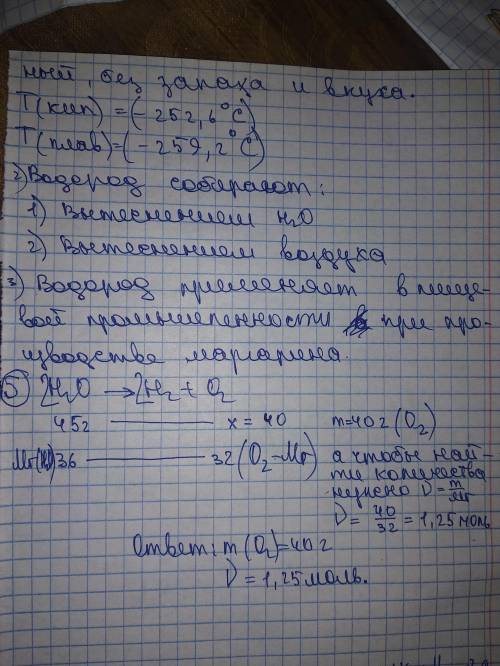 ный, без запаха и вкуса.
T(кип) = (-252,6°C)
T(плав) = (-259,2°C)
2) Водород собирают:
1) Вытеснением H₂O
2) Вытеснением воздуха
3) Водород применяет в пище-
вой промышленности при про-
изводстве маргарина.
5) 2H₂O → 2H₂ + O₂
45г — x = 40 m = 40г (O₂)
36 — 32 (O₂ - Mr) а чтобы най-
ти количества
нужно ν = m/Mr
ν = 40/32 = 1,25 моль
Ответ: m(O₂) = 40г
ν = 1,25 моль.